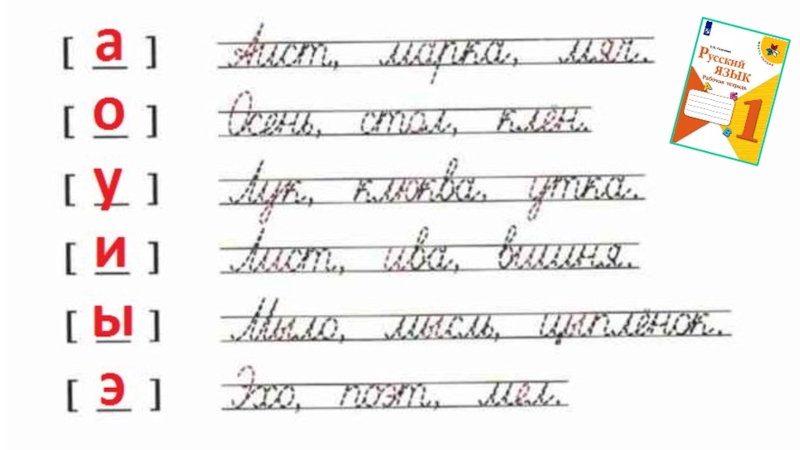 [ а ] Аист, марка, мяч.
[ о ] Осень, стол, клён.
[ у ] Лук, клюква, утка.
[ и ] Лист, ива, вишня.
[ ы ] Мыло, мысль, цыплёнок.
[ э ] Эхо, поэт, мел.
Русский
ЯЗЫК
Рабочая тетрадь
1